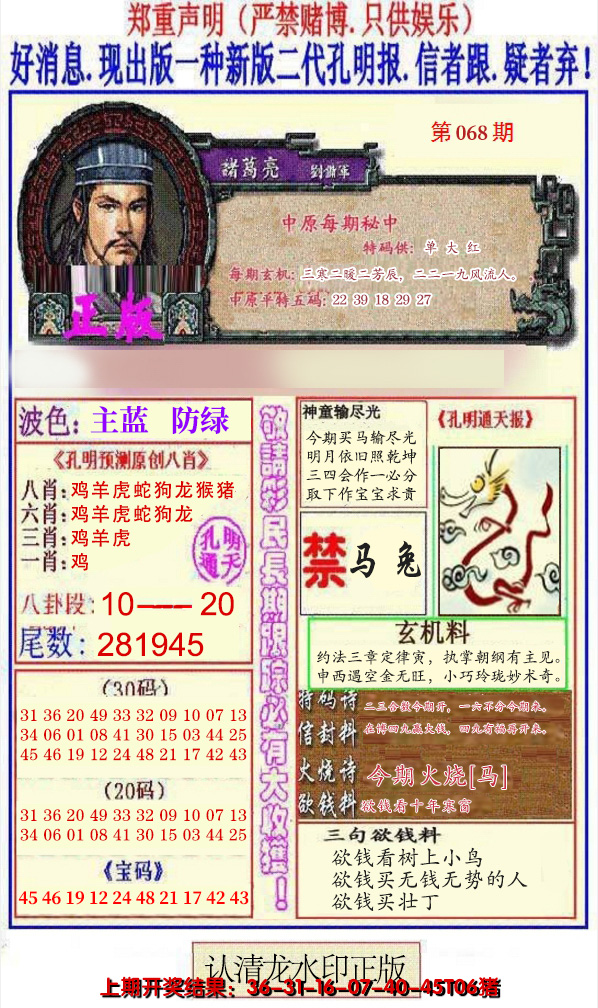 郑重声明（严禁赌博.只供娱乐）
好消息.现出版一种新版二代孔明报.信者跟.疑者弃!
第068期
諸葛亮 劉備軍
中原每期秘中
特码供: 单大红
每期玄机: 三寒二暖二芳辰，二二一九风流人。
中原平特五码: 22 39 18 29 27
正版
波色: 主蓝 防绿
《孔明预测原创八肖》
八肖: 鸡羊虎蛇狗龙猴猪
六肖: 鸡羊虎蛇狗龙
三肖: 鸡羊虎
一肖: 鸡
孔明
通天
八卦段: 10——20
尾数: 281945
(30码)
31 36 20 49 33 32 09 10 07 13
34 06 01 08 41 30 15 03 44 25
45 46 19 12 24 48 21 17 42 43
(20码)
31 36 20 49 33 32 09 10 07 13
34 06 01 08 41 30 15 03 44 25
《宝码》
45 46 19 12 24 48 21 17 42 43
敬請彩民長期跟踪必有大收獲！
神童输尽光
今期买马输尽光
明月依旧照乾坤
三四会作一必分
取下作宝宝求贵
《孔明通天报》
禁 马 兔
玄机料
约法三章定律寅，执掌朝纲有主见。
申西遇空金无旺，小巧玲珑妙术奇。
特码诗 二三合数今期开，一六不分今期来。
信封料 在博四九赢大钱，四九有福再开来。
火烧诗 今期火烧[马]
欲钱料 欲钱看十年寒窗
三句欲钱料
欲钱看树上小鸟
欲钱买无钱无势的人
欲钱买壮丁
认清龙水印正版
上期开奖结果：36-31-16-07-40-45T06猪